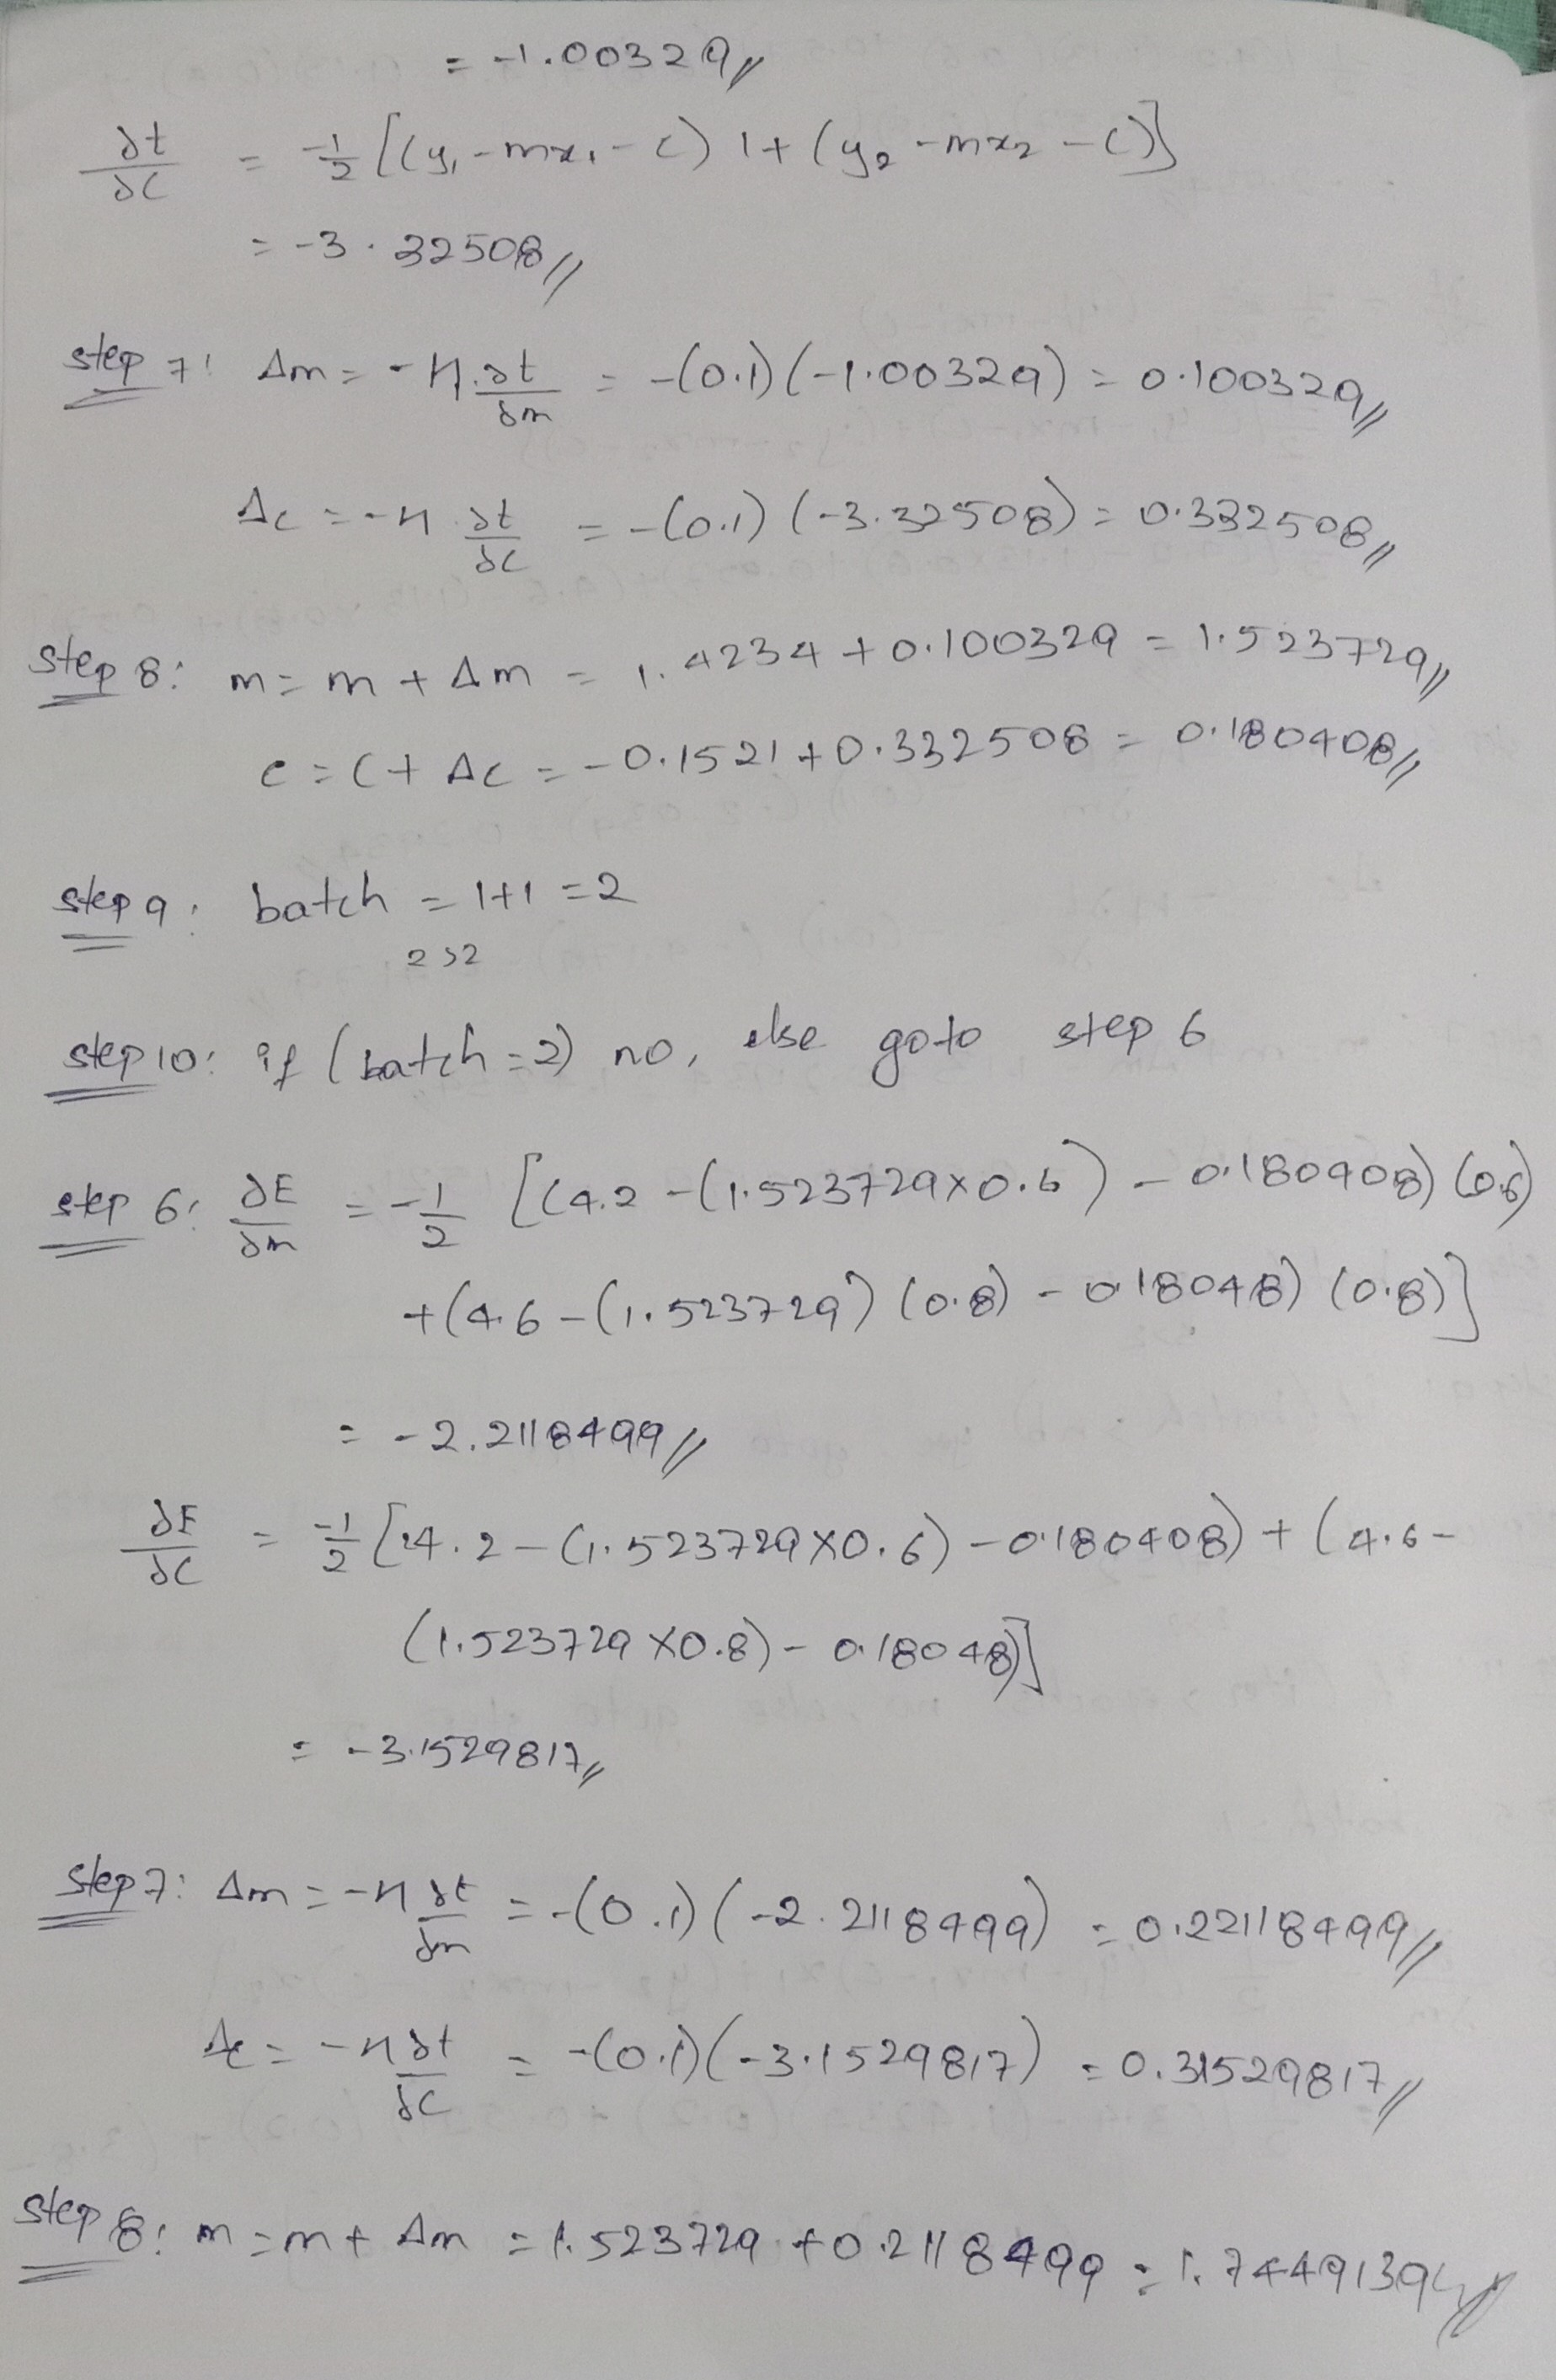 = -1.00329//
∂t/∂c = -1/2 [(y₁ - mx₁ - c) 1 + (y₂ - mx₂ - c)]
= -3.32508//
step 7: Δm = -η.∂t/∂m = -(0.1)(-1.00329) = 0.100329//
Δc = -η ∂t/∂c = -(0.1)(-3.32508) = 0.332508//
step 8: m = m + Δm = 1.4234 + 0.100329 = 1.523729//
c = c + Δc = -0.1521 + 0.332508 = 0.180408//
step 9: batch = 1+1 = 2
2 > 2
step 10: if (batch = 2) no, else goto step 6
step 6: ∂E/∂m = -1/2 [(4.2 - (1.523729 × 0.6) - 0.180408) (0.6)
+ (4.6 - (1.523729) (0.8) - 0.18048) (0.8)]
= -2.2118499//
∂E/∂c = -1/2 [4.2 - (1.523729 × 0.6) - 0.180408) + (4.6 -
(1.523729 × 0.8) - 0.18048)]
= -3.1529817//
step 7: Δm = -η ∂t/∂m = -(0.1)(-2.2118499) = 0.22118499//
Δc = -η ∂t/∂c = -(0.1)(-3.1529817) = 0.31529817//
step 8: m = m + Δm = 1.523729 + 0.2118499 = 1.7449139